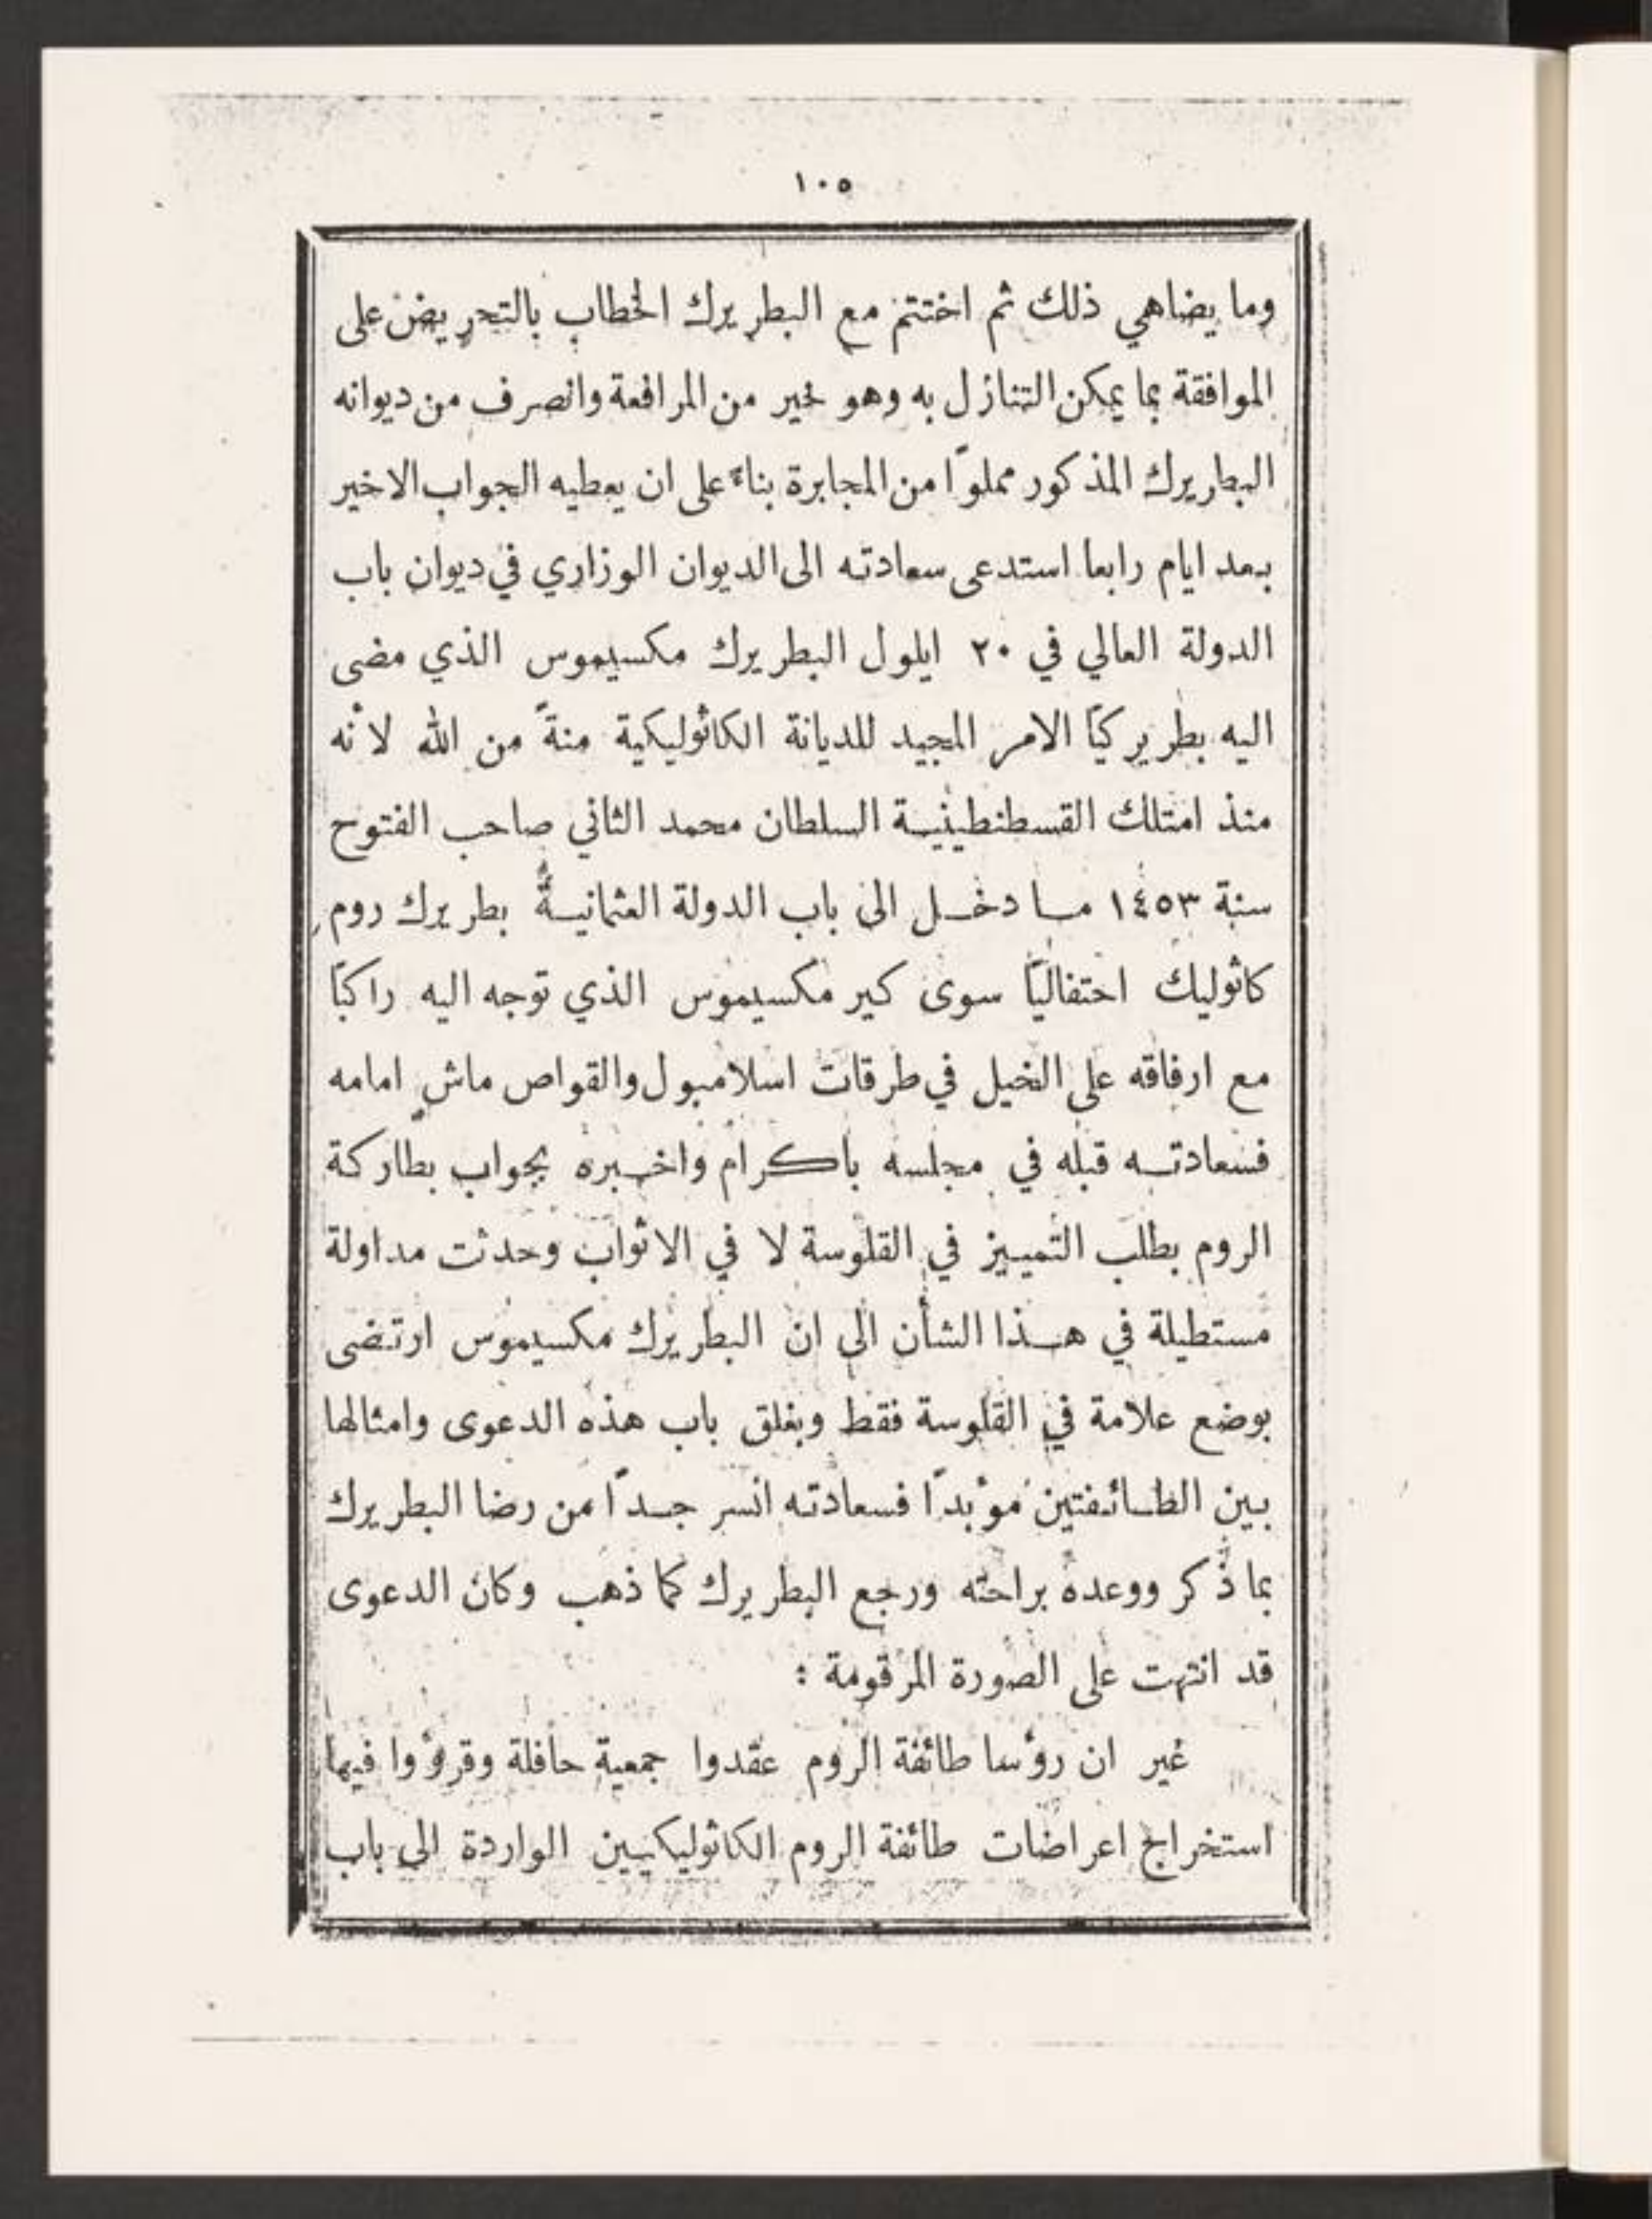 ١٠٥
وما يضاهي ذلك ثم اختتم مع البطريرك الخطاب بالتحريض على
الموافقة بما يمكن التنازل به وهو خير من المرافعة وانصرف من ديوانه
البطريرك المذكور مملوًا من المجابرة بناءً على ان يعطيه الجواب الاخير
بعد ايام رابعا استدعى سعادته الى الديوان الوزاري في ديوان باب
الدولة العالي في ٢٠ ايلول البطريرك مكسيموس الذي مضى
اليه بطريركيًا الامر المجيد للديانة الكاثوليكية منةً من الله لأنه
منذ امتلك القسطنطينية السلطان محمد الثاني صاحب الفتوح
سنة ١٤٥٣ ما دخل الى باب الدولة العثمانية بطريرك روم
كاثوليك احتفاليًا سوى كير مكسيموس الذي توجه اليه راكبًا
مع ارفاقه على الخيل في طرقات اسلامبول والقواص ماشٍ امامه
فسعادته قبله في مجلسه باكرام واخبره بجواب بطاركة
الروم بطلب التمييز في القلوسة لا في الاثواب وحدثت مداولة
مستطيلة في هذا الشأن الى ان البطريرك مكسيموس ارتضى
بوضع علامة في القلوسة فقط وبغلق باب هذه الدعوى وامثالها
بين الطائفتين مؤبدًا فسعادته انسر جدًا من رضا البطريرك
بما ذُكر ووعده براحته ورجع البطريرك كما ذهب وكان الدعوى
قد انتهت على الصورة المرقومة :
غير ان رؤسا طائفة الروم عقدوا جمعية حافلة وقرؤوا فيها
استخراج اعراضات طائفة الروم الكاثوليكيين الواردة الى باب